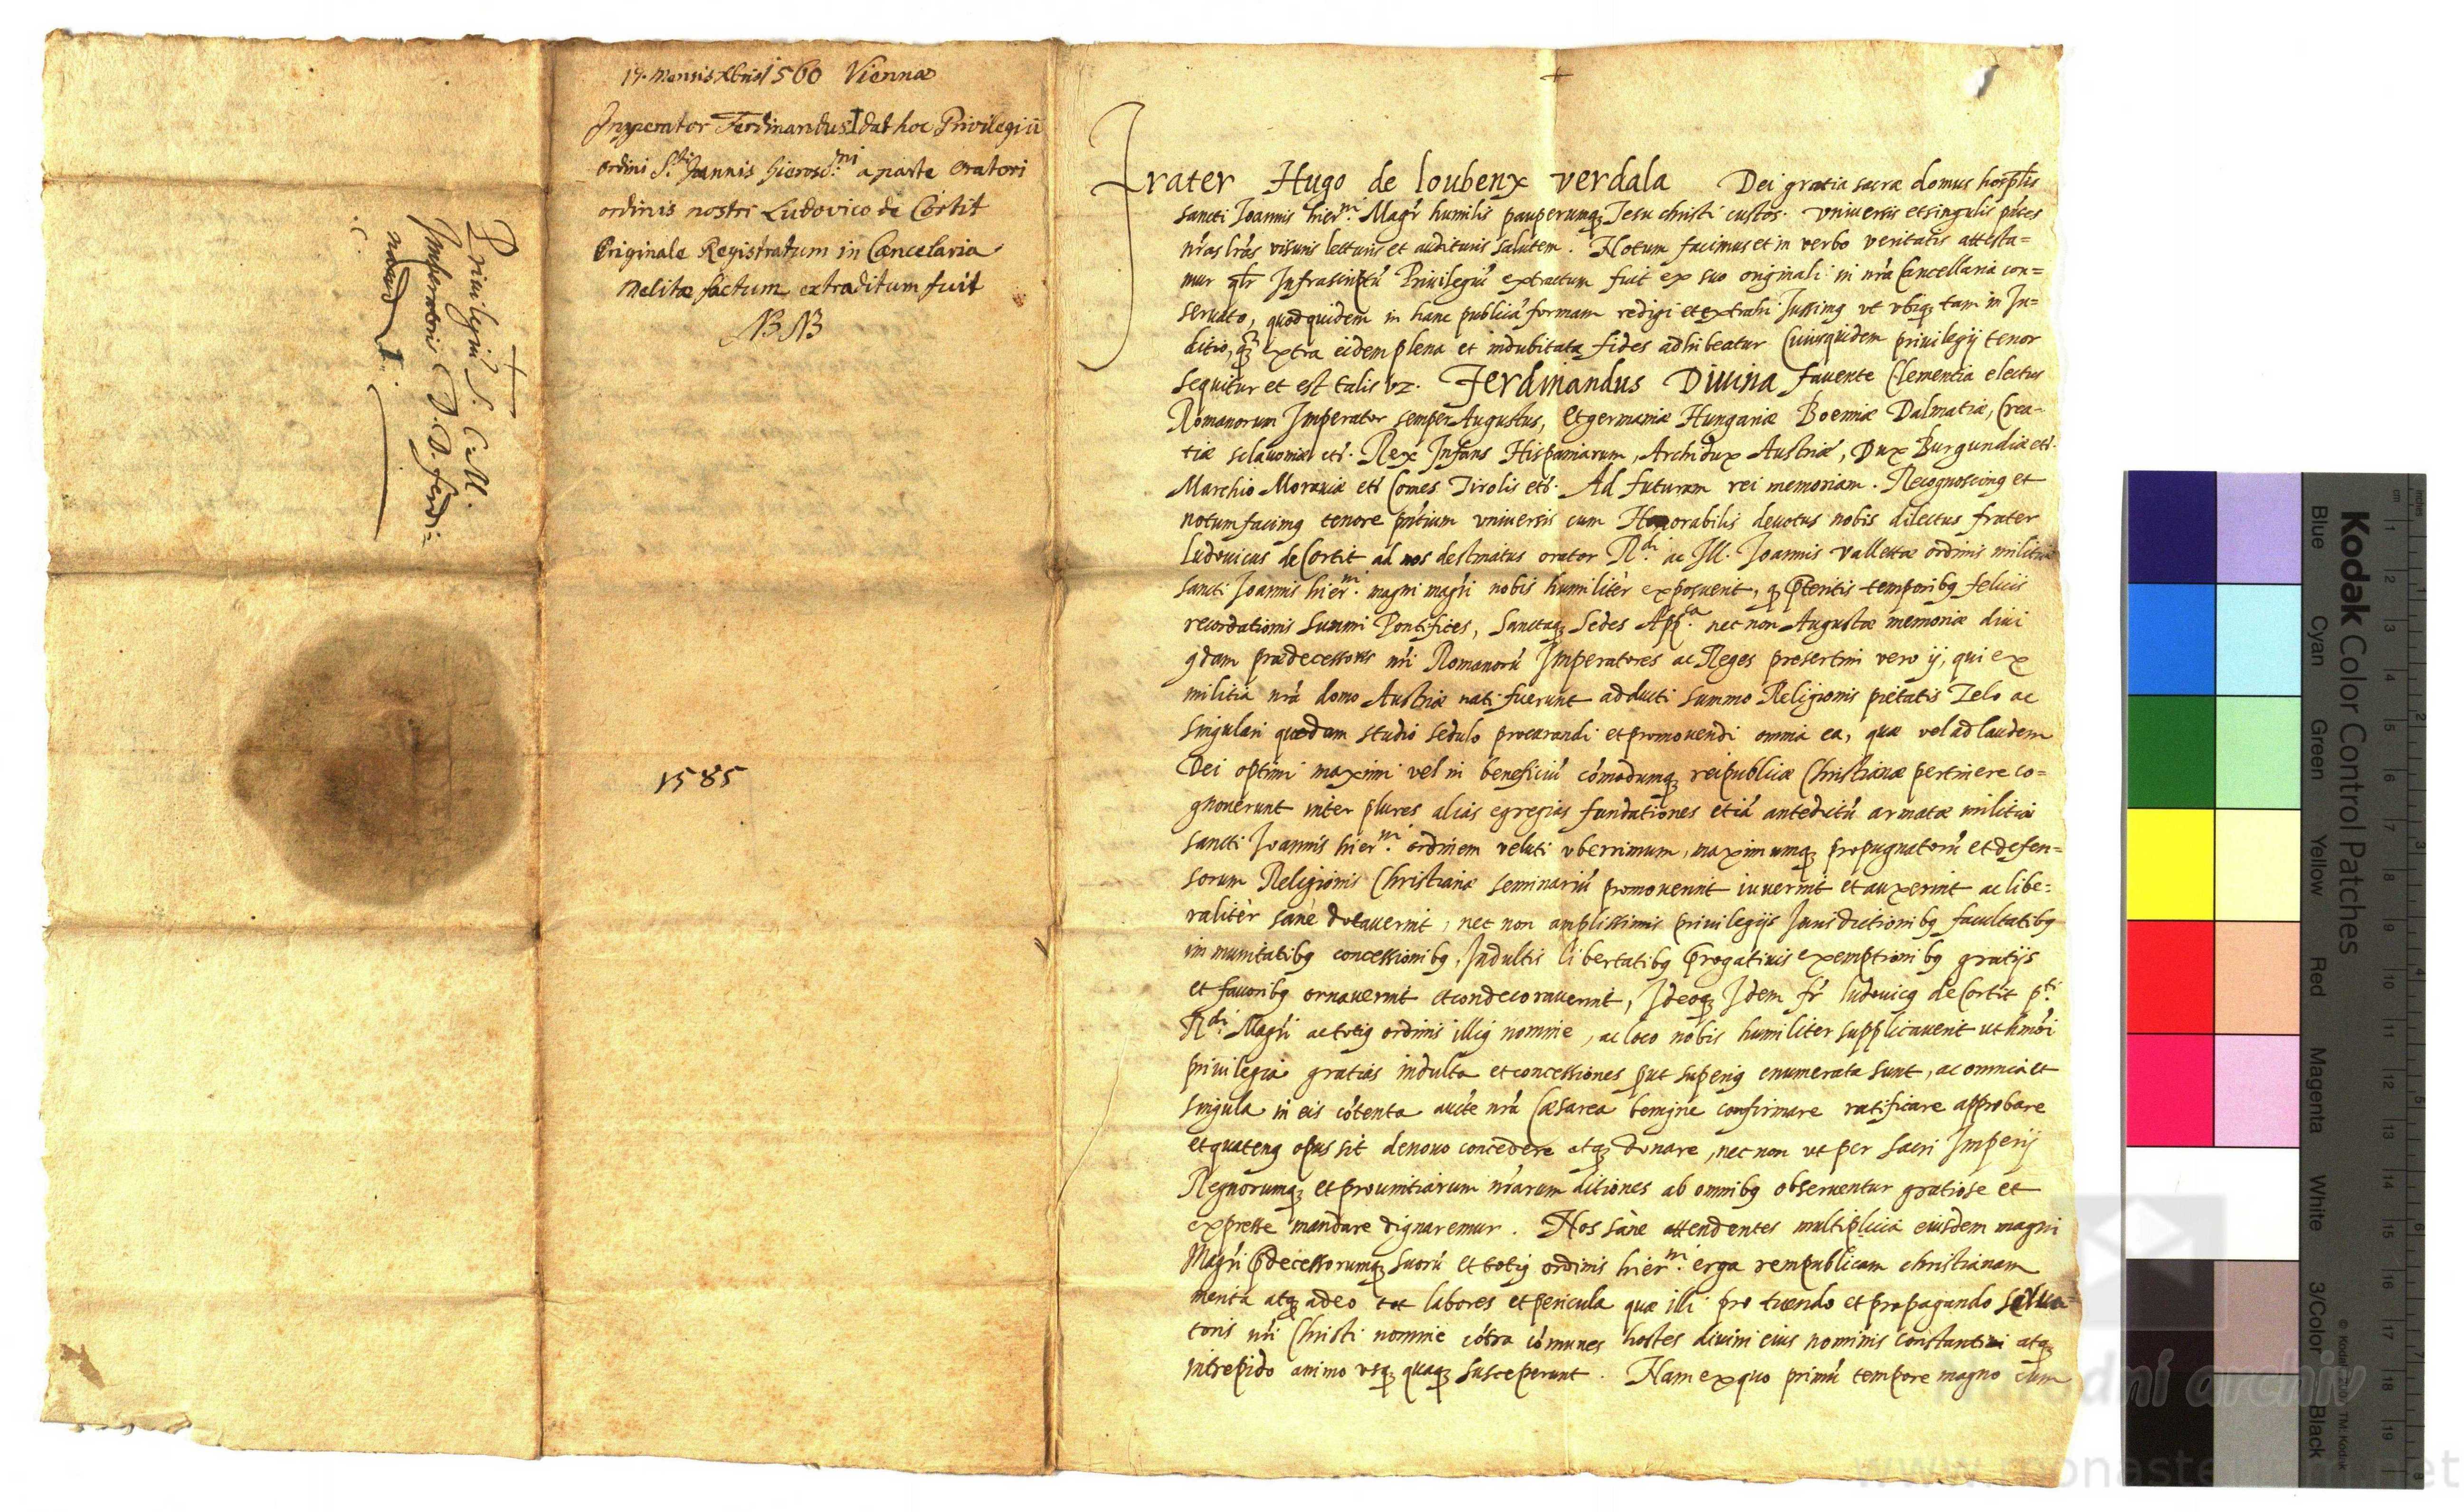 Privilegiũ S. C. M.
Imperatoris D. D. ferdi=
nandi I.
19. mensis Xbris 1560 Viennæ
Imperator Ferdinandus I dat hoc Privilegiũ
ordini S.ti Joannis Hierosol.mi a parte oratori
ordinis nostri Ludovico de Cortit
Originale Registratum in Cancelaria
Melitæ factum extraditum fuit
NB NB
1585
Frater Hugo de loubenx verdala Dei gratia sacræ domus hosplis
sancti Joannis hier.mi Magr humilis pauperumq; Jesu christi custos. vniuersis et singulis pñtes
nras lras visuris lecturis et audituris salutem. Notum facimus et in verbo veritatis attesta=
mur qlr Infrascriptũ Priuilegiũ extractum fuit ex suo originali in nrã Cancellaria con=
seruato, quod quidem in hanc publicã formam redigi et extrahi Jussimq vt vbiq; tam in Ju=
ditio, q; extra eidem plena et indubitata fides adhibeatur Cuiusquidem priuilegij tenor
sequitur et est talis vz. Ferdinandus Diuina fauente Clementia electus
Romanorum Imperator semper Augustus, et germaniæ Hungariæ Boemiæ Dalmatiæ, Croa-
tiæ sclauoniæ etc. Rex Infans Hispaniarum, Archidux Austriæ, Dux Burgundiæ etc.
Marchio Morauiæ etc Comes Tirolis etc. Ad futuram rei memoriam. Recognoscimq et
notum facimq tenore pñtium vniuersis cum Honorabilis deuotus nobis dilectus frater
Ludouicus de Cortit ad nos destinatus orator R.di ac Ill. Joannis vallettæ ordinis militiæ
sancti Joannis hier.mi magni magri nobis humilitèr exposuerit, q; pteritis temporibq felicis
recordationis summi Pontifices, sanctaq; Sedes App.ca nec non Augustæ memoriæ diui
qdam prædecessores nri Romanorũ Imperatores ac Reges presertim vero ij, qui ex
militia nrã domo Austriæ nati fuerunt adducti summo Religionis pietatis Zelo ac
singulari quodam studio sedulo procurandi et promouendi omnia ea, quæ vel ad laudem
Dei optimi maximi vel in beneficiũ cõmodumq; reipublicæ Christianæ pertinere co=
gnouerunt inter plures alias egregias fundationes etiã antedictũ armatæ militiæ
sancti Joannis hier.mi ordinem veluti vberrimum, maximumq; propugnatorũ et defen=
sorum Religionis Christianæ seminariũ promouerint iuuerint et auxerint ac libe=
ralitèr sanè dotauerint, nec non amplissimis priuilegijs Jurisdictionibq facultatibq
immunitatibq concessionibq, Indultis libertatibq progatiuis exemptionibq gratijs
et fauoribq ornauerint et condecorauerint, Ideoq; Idem fr ludouicq de Cortit p.ti
R.di Magri ac totiq ordinis illiq nomine, ac loco nobis humiliter supplicauerit ut hmõi
priuilegia gratias indulta et concessiones put superiq enumerata sunt, ac omnia et
singula in eis cõtenta aucte nrã Cæsarea benigne confirmare ratificare approbare
et quatenq opus sit denouo concedere atq; donare, nec non vt per sacri Imperij
Regnorumq; et prouintiarum nrarum ditiones ab omnibq obseruentur gratiose et
expresse mandare dignaremur. Nos sanè attendentes multiplicia eiusdem magni
Magri pdecessorumq; suorũ et totiq ordinis hier.mi erga rempublicam christianam
merita atq; adeo tot labores et pericula quæ illi pro tuendo et propagando salua=
toris nri Christi nomine cõtra cõmunes hostes diuini eius nominis constanti atq;
intrepido animo vsq; quaq; susceperunt. Nam ex quo primũ tempore magno cum
Kodak Color Control Patches
Blue Cyan Green Yellow Red Magenta White 3/Color Black
Národní archiv
www.monasterium.net